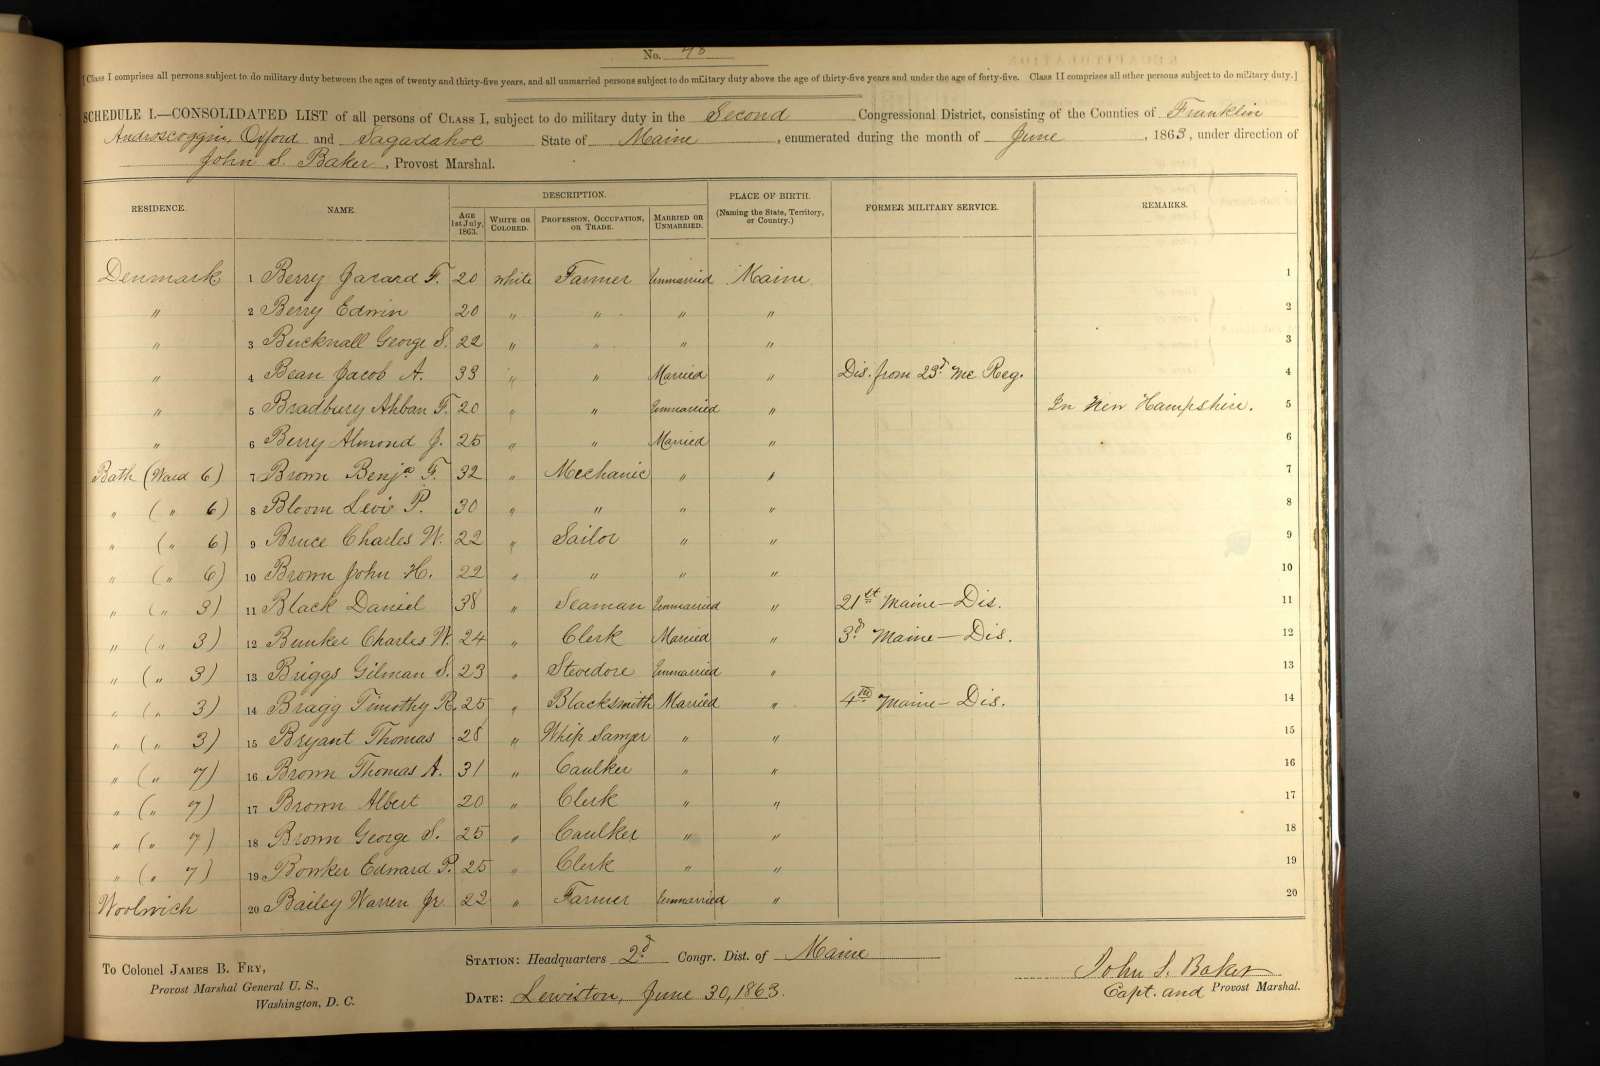 No. 78
[Class I comprises all persons subject to do military duty between the ages of twenty and thirty-five years, and all unmarried persons subject to do military duty above the age of thirty-five years and under the age of forty-five. Class II comprises all other persons subject to do military duty.]
SCHEDULE I.—CONSOLIDATED LIST of all persons of CLASS I, subject to do military duty in the Second Congressional District, consisting of the Counties of Franklin
Androscoggin, Oxford and Sagadahoc State of Maine, enumerated during the month of June, 1863, under direction of
John S. Baker, Provost Marshal.
RESIDENCE. NAME. DESCRIPTION. PLACE OF BIRTH. (Naming the State, Territory, or Country.) FORMER MILITARY SERVICE. REMARKS.
AGE 1st July, 1863. WHITE OR COLORED. PROFESSION, OCCUPATION, OR TRADE. MARRIED OR UNMARRIED.
Denmark 1 Berry Jarard F. 20 white Farmer Unmarried Maine 1
" 2 Berry Edwin 20 " " " " 2
" 3 Bucknall George S. 22 " " " " 3
" 4 Bean Jacob A. 33 " " Married " Dis. from 23d Me Reg. 4
" 5 Bradbury Ahban F. 20 " " Unmarried " In New Hampshire. 5
" 6 Berry Almond J. 25 " " Married " 6
Bath (Ward 6) 7 Brown Benja F. 32 " Mechanic " " 7
" ( " 6) 8 Bloom Levi P. 30 " " " " 8
" ( " 6) 9 Bruce Charles W. 22 " Sailor " " 9
" ( " 6) 10 Brown John H. 22 " " " " 10
" ( " 3) 11 Black Daniel 38 " Seaman Unmarried " 21st Maine – Dis. 11
" ( " 3) 12 Bunker Charles W. 24 " Clerk Married " 3d Maine – Dis. 12
" ( " 3) 13 Briggs Gilman S. 23 " Stevedore Unmarried " 13
" ( " 3) 14 Bragg Timothy R. 25 " Blacksmith Married " 4th Maine – Dis. 14
" ( " 3) 15 Bryant Thomas 28 " Whip " " 15
" ( " 7) 16 Brown Thomas A. 31 " Caulker " " 16
" ( " 7) 17 Brown Albert 20 " Clerk " " 17
" ( " 7) 18 Brown George S. 25 " Caulker " " 18
" ( " 7) 19 Bowker Edward P. 25 " Clerk " " 19
Woolwich 20 Bailey Warren Jr 22 " Farmer Unmarried " 20
To Colonel JAMES B. FRY,
Provost Marshal General U. S.,
Washington, D. C.
STATION: Headquarters 2d Congr. Dist. of Maine
DATE: Lewiston, June 30, 1863.
John S. Baker
Capt. and Provost Marshal.